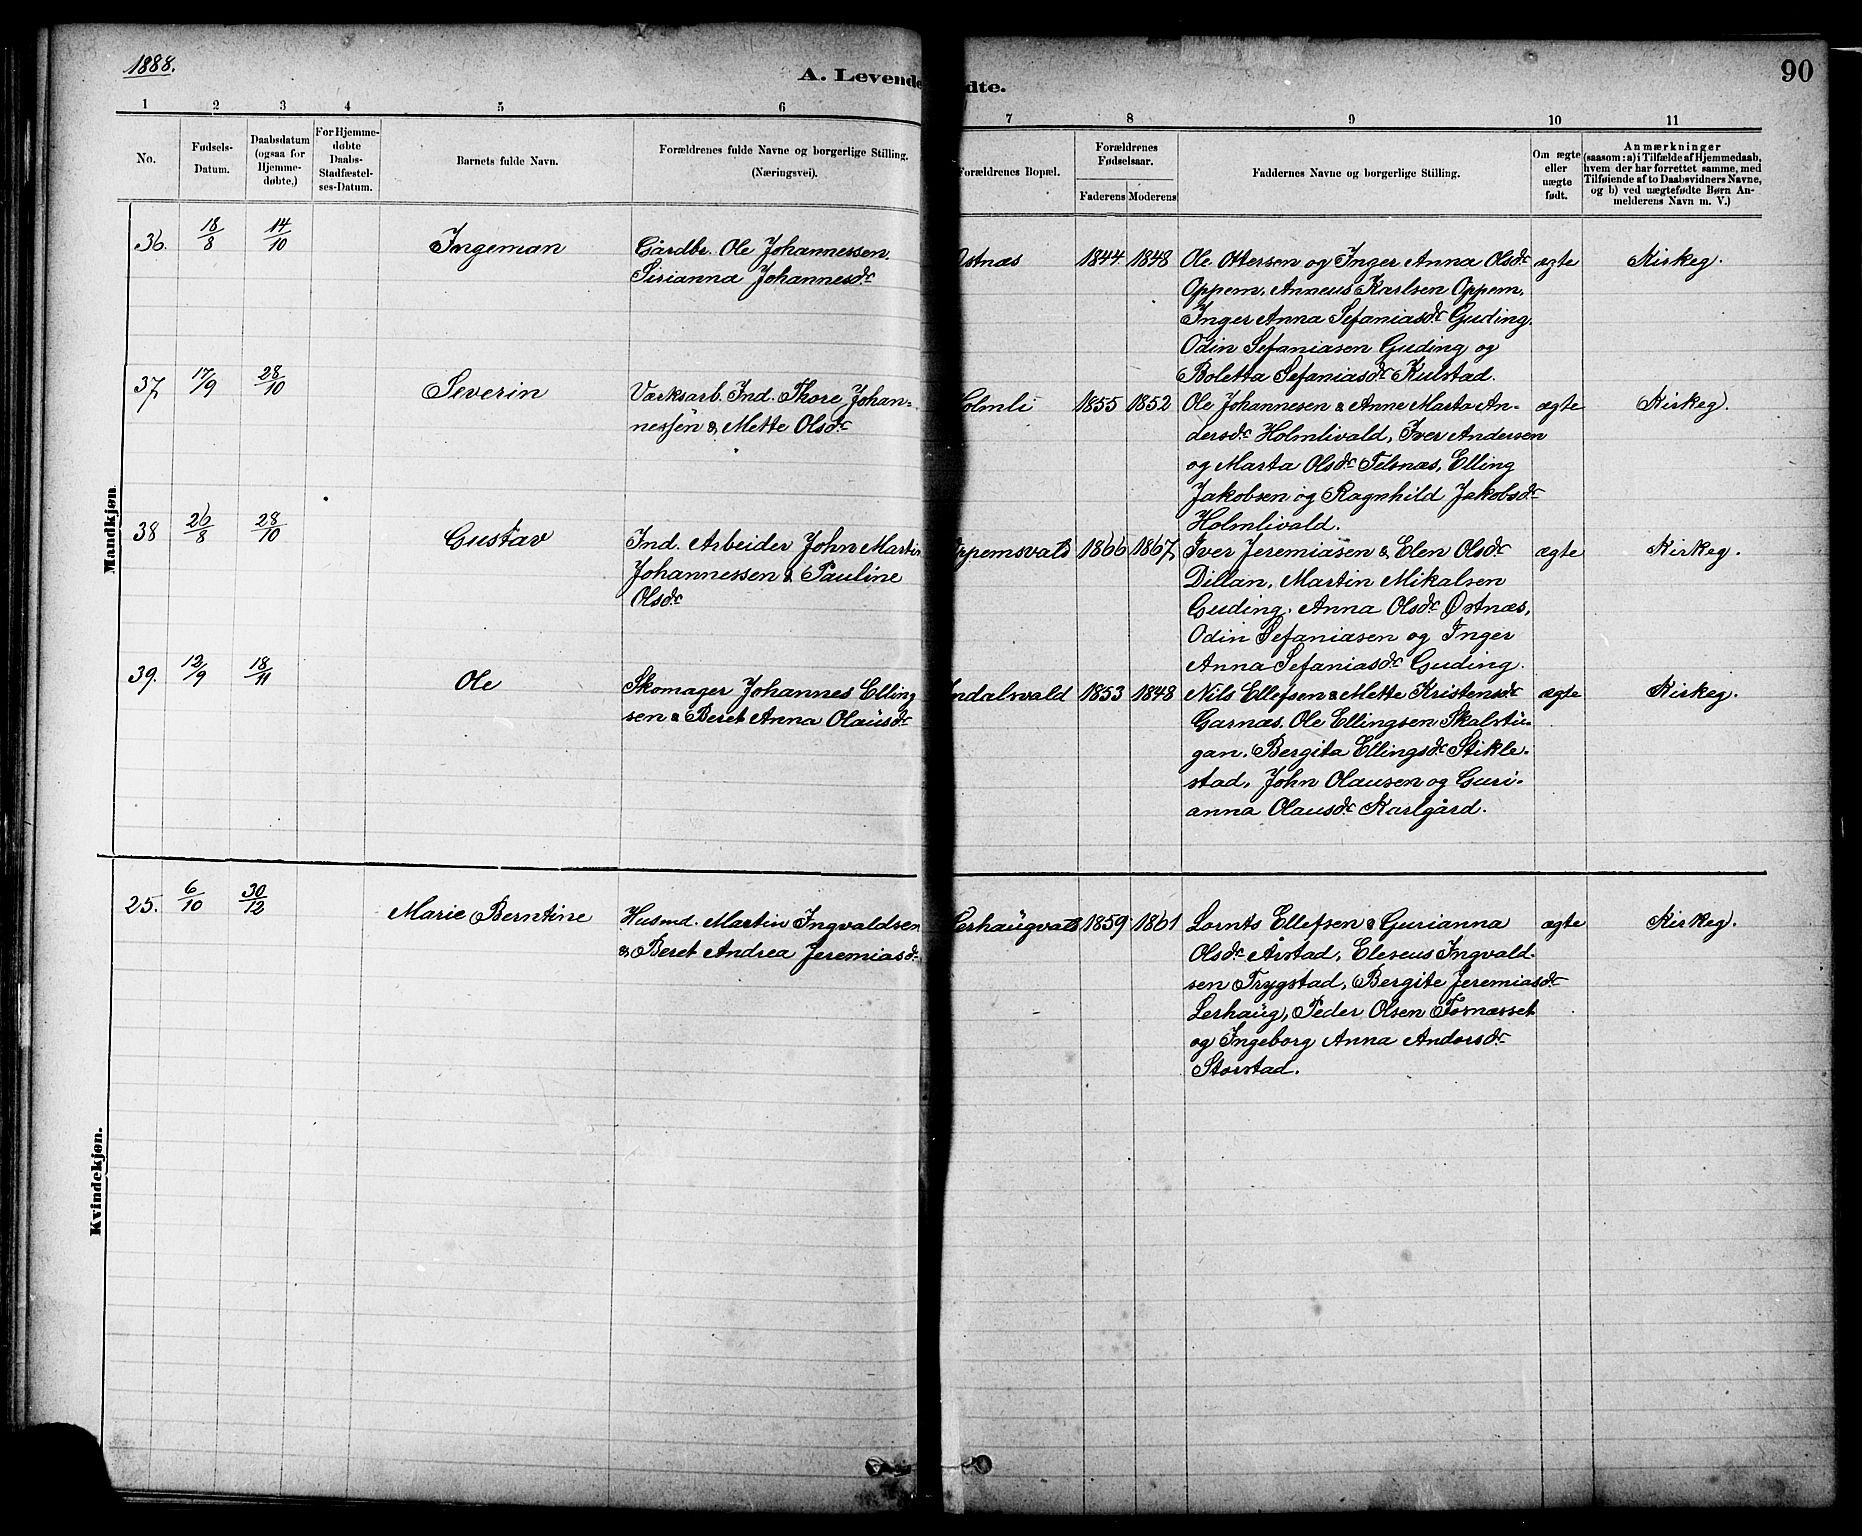 1888.
A. Levende
dte.
90
1 2 3 4 5 6 7 8 9 10 11
No.
Fødsels-
Datum.
Daabsdatum
(ogsaa for
Hjemme-
døbte.)
For Hjemme-
døbte
Daabs-
Stadfæstel-
ses-Datum.
Barnets fulde Navn.
Forældrenes fulde Navne og borgerlige Stilling.
(Næringsvei).
Forældrenes Bopæl.
Forældrenes
Fødselsaar.
Faderens Moderens
Faddernes Navne og borgerlige Stilling.
Om ægte
eller
uægte
født.
Anmærkninger
(saasom: a) i Tilfælde af Hjemmedaab,
hvem der har forrettet samme, med
Tilføiende af to Daabsvidners Navne,
og b) ved uægtefødte Børn An-
melderens Navn m. V.)
Mandkjøn.
36. 18/8 14/10 Ingeman
Gårdbr. Ole Johannessen.
Sirianna Johannesdr
Østnæs 1844 1848
Ole Ottersen og Inger Anna Olsdr
Oppem, Anneus Karlsen Oppem,
Inger Anna Sefaniasdr Guding.
Odin Sefaniasen Guding og
Boletta Sefaniasdr Kulstad.
ægte Kirkeg.
37 17/9 28/10 Severin
Værksarb. Ind. Thore Johan-
nessen & Mette Olsdr
Holmli 1855 1852
Ole Johannesen & Anne Marta An-
dersdr Holmlivald, Iver Andersen
og Marta Olsdr Telsnæs, Elling
Jakobsen og Ragnhild Jakobsdr
Holmlivald.
ægte Kirkeg.
38 26/8 28/10 Gustav
Ind. Arbeider John Martin
Johannessen & Pauline
Olsdr
Oppemsvald 1866 1867
Iver Jeremiasen & Elen Olsdr
Dillan, Martin Mikalsen
Guding. Anna Olsdr Østnæs,
Odin Sefaniasen og Inger
Anna Sefaniasdr Guding.
ægte Kirkeg.
39. 12/9 18/11 Ole
Skomager Johannes Elling
sen & Beret Anna Olausdr
Indalsvald 1853 1848
Nils Ellefsen & Mette Kristensdr
Garnæs. Ole Ellingsen Skalstu-
gan. Bergita Ellingsdr Stikle-
stad, John Olausen og Guri-
anna Olausdr Karlgård.
ægte Kirkeg.
Kvindekjøn.
25. 6/10 30/12 Marie Berntine
Husmd. Martin Ingvaldsen
& Beret Andrea Jeremiasdr
Lerhaugvald 1859 1861
Lornts Ellefsen & Gurianna
Olsdr Årstad, Eleseus Ingvald-
sen Trygstad, Bergite Jeremiasdr
Lerhaug, Peder Olsen Tornæsset
og Ingeborg Anna Andorsdr
Storstad.
ægte Kirkeg.